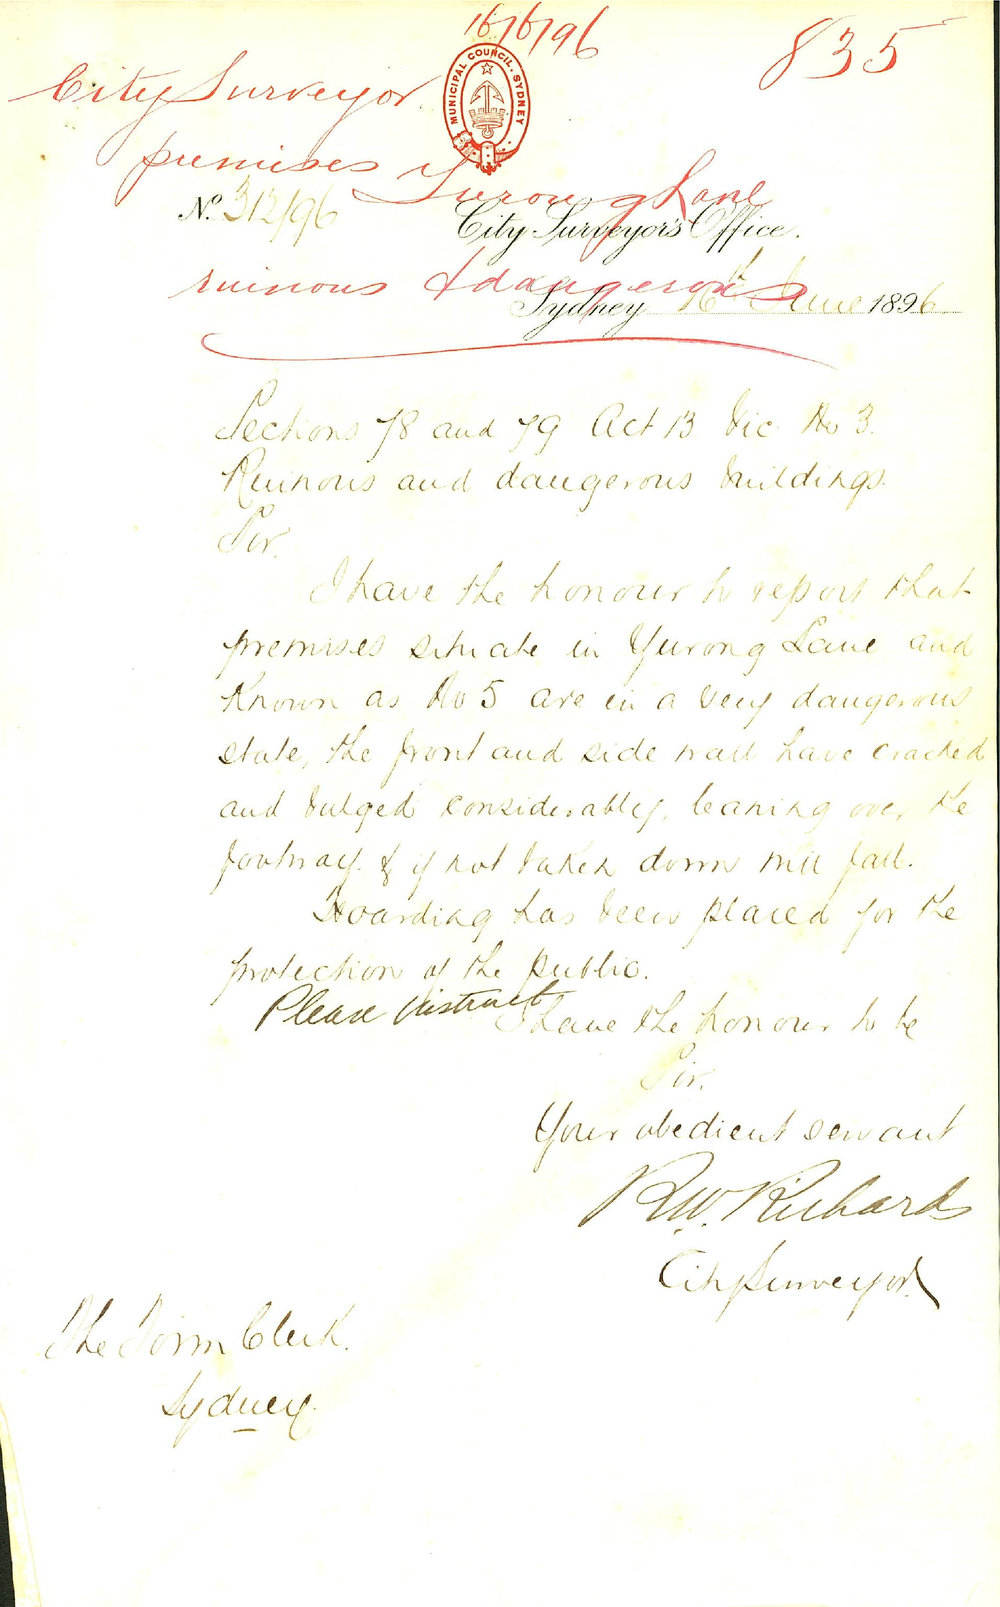 16/6/96
835
City Surveyor
MUNICIPAL COUNCIL. SYDNEY
premises Yurong Lane
No. 312/96
City Surveyor's Office.
ruinous & dangerous
Sydney 16th June 1896
Sections 78 and 79 Act 13 Vic No 3.
Ruinous and dangerous buildings.
Sir,
I have the honour to report that
premises situate in Yurong Lane and
known as No 5 are in a very dangerous
state, the front and side wall have cracked
and bulged considerably, leaning over the
footway & if not taken down will fall.
Hoarding has been placed for the
protection of the public.
Please instruct
I have the honour to be
Sir,
Your obedient servant
R.W. Richards
City Surveyor
The Town Clerk.
Sydney.